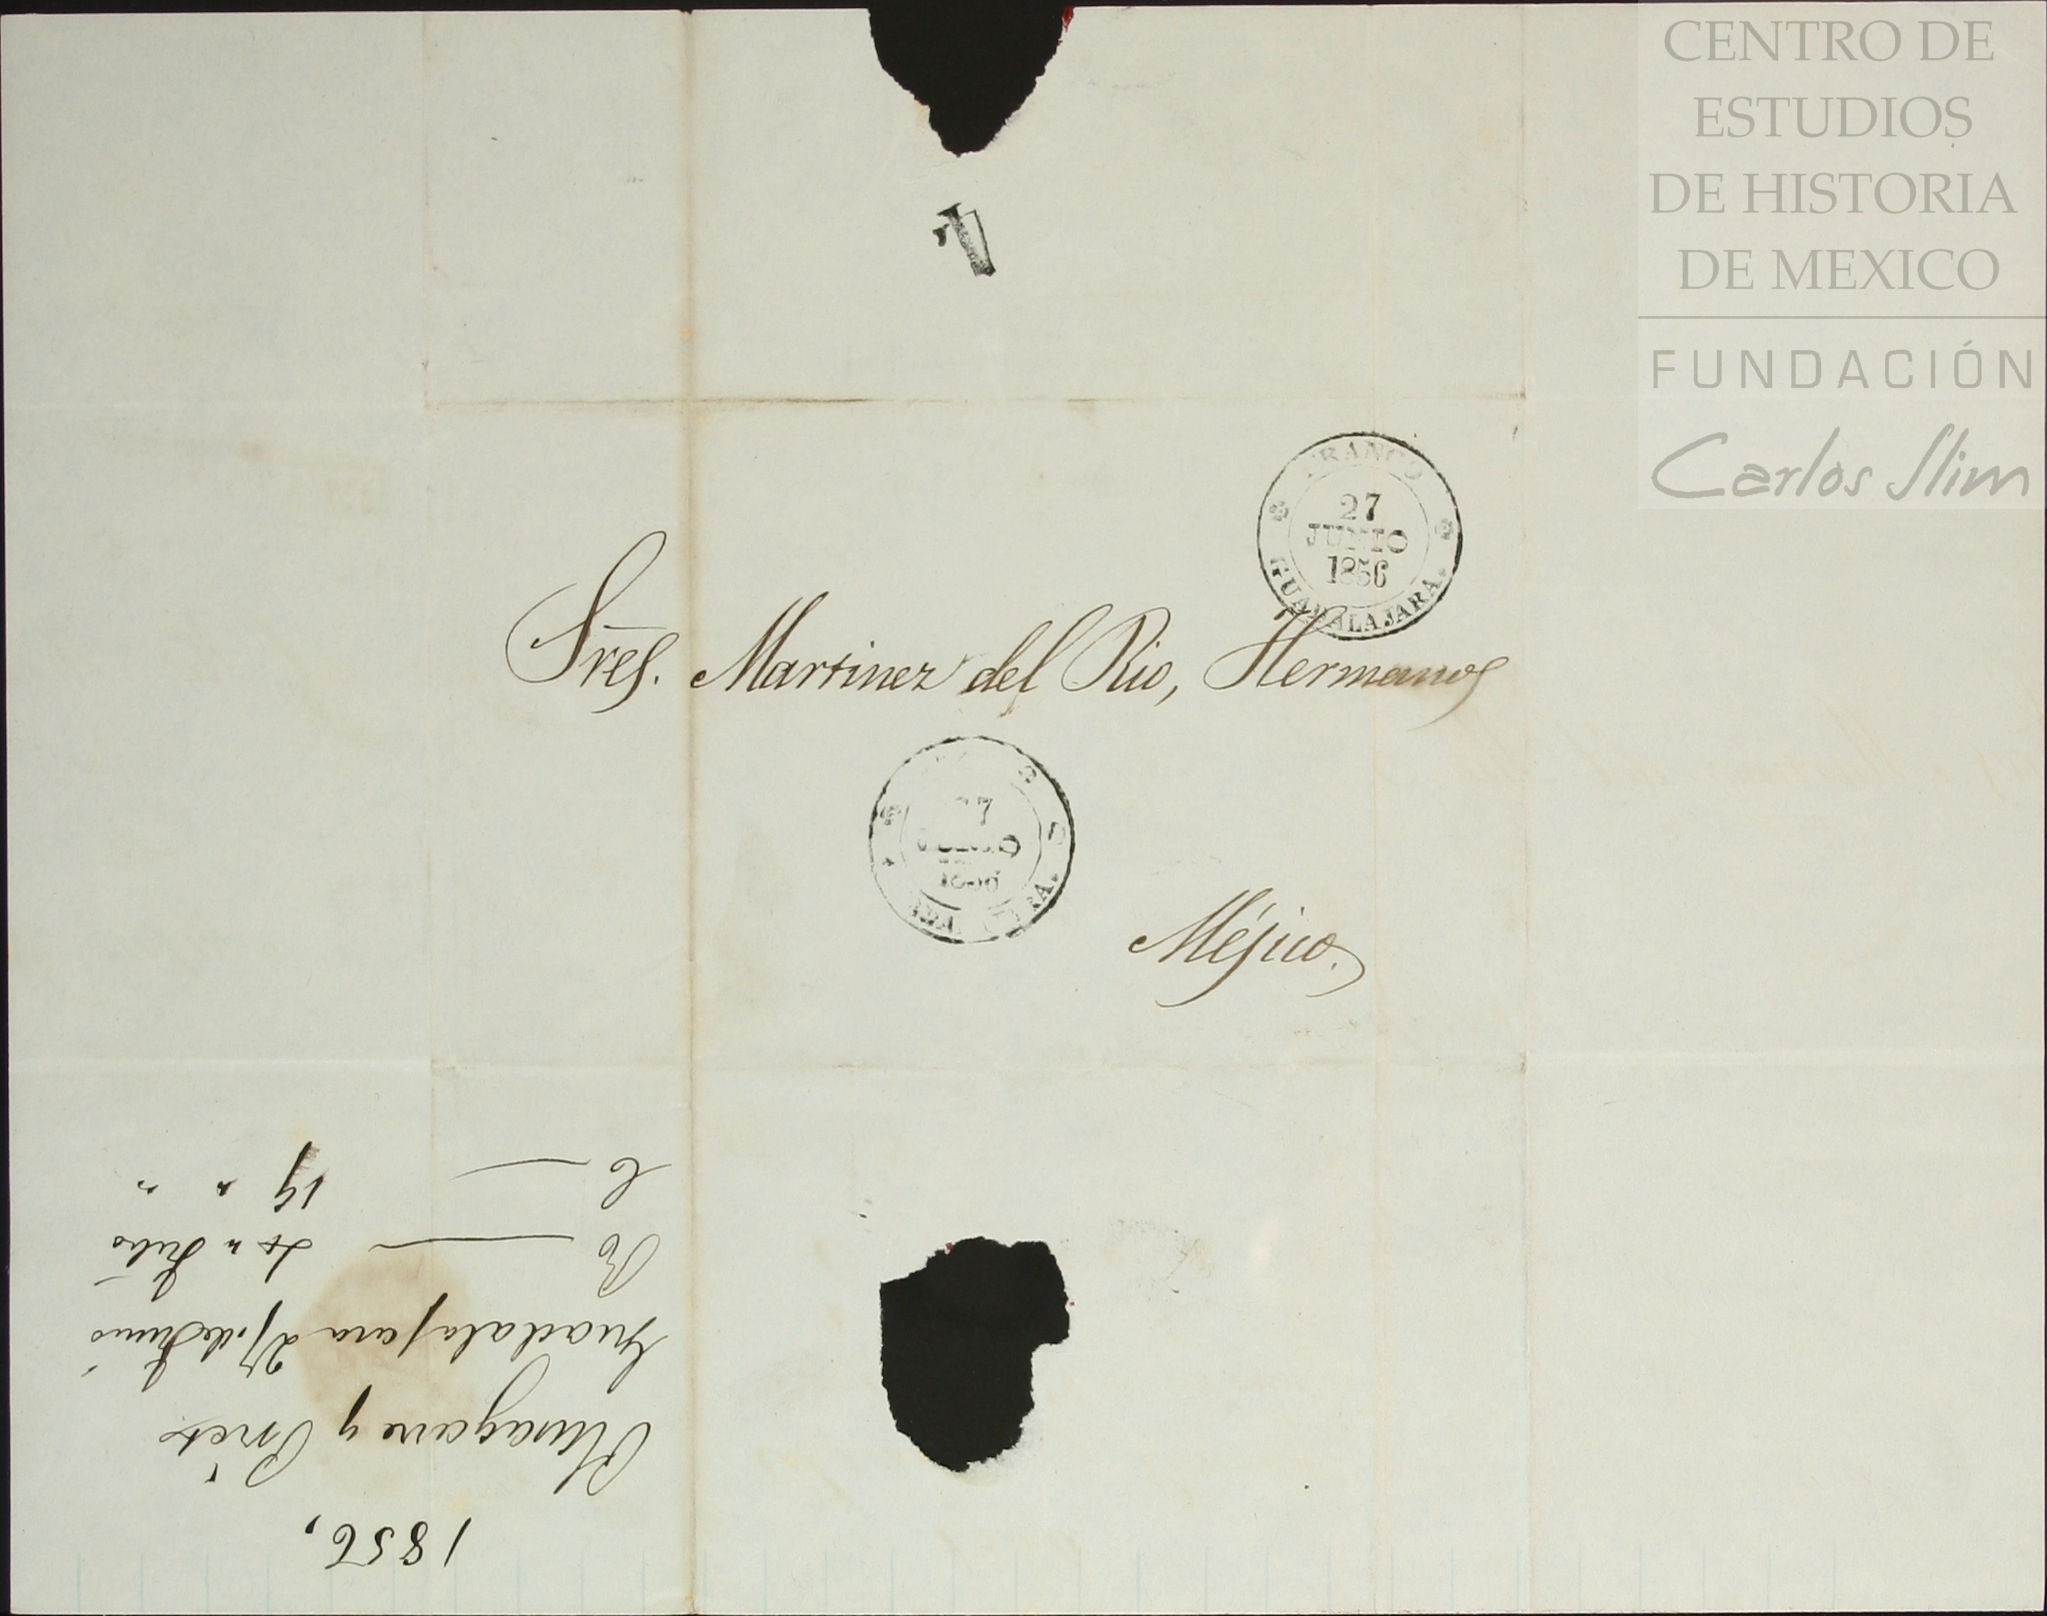 CENTRO DE
ESTUDIOS
DE HISTORIA
DE MEXICO
FUNDACIÓN
Carlos Slim
FRANCO
27
JUNIO
1856
GUADALAJARA.
Sres. Martinez del Rio, Hermanos
Méjico.
1856,
y Prieto
Guadalajara 27 de Junio
R 1o " Julio
C 19 " "